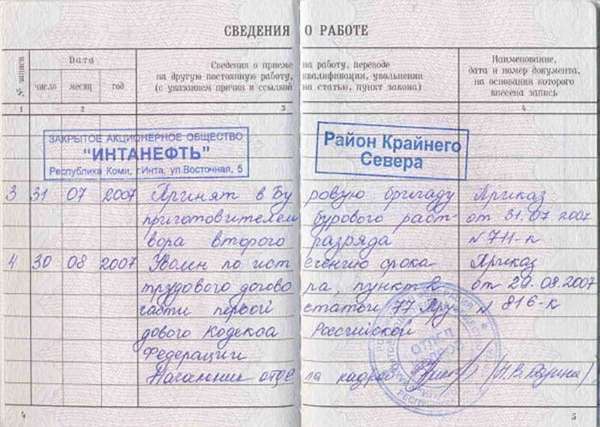 СВЕДЕНИЯ О РАБОТЕ
№ записи
Дата
число месяц год
Сведения о приеме на работу, переводе
на другую постоянную работу, квалификации, увольнении
(с указанием причин и ссылкой на статью, пункт закона)
Наименование,
дата и номер документа,
на основании которого
внесена запись
1 2 3 4
ЗАКРЫТОЕ АКЦИОНЕРНОЕ ОБЩЕСТВО
"ИНТАНЕФТЬ"
Республика Коми, г.Инта, ул.Восточная, 5
Район Крайнего
Севера
3 31 07 2007 Принят в буровую бригаду Приказ
приготовителем бурового раст- от 31.07.2007
вора второго разряда №711-к
4 30 08 2007 Уволен по истечению срока Приказ
трудового договора, пункт 2 от 20.08.2007
части первой статьи 77 Тру- № 816-к
дового Кодекса Российской
Федерации
Начальник отдела кадров
4 5